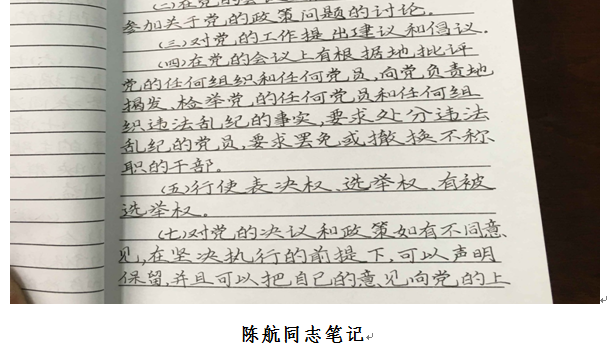 (二)在党的会议
参加关于党的政策问题的讨论。
(三)对党的工作提出建议和倡议。
(四)在党的会议上有根据地批评
党的任何组织和任何党员,向党负责地
揭发、检举党的任何党员和任何组
织违法乱纪的事实,要求处分违法
乱纪的党员,要求罢免或撤换不称
职的干部。
(五)行使表决权、选举权、有被
选举权。
(七)对党的决议和政策如有不同意
见,在坚决执行的前提下,可以声明
保留,并且可以把自己的意见向党的上
陈航同志笔记